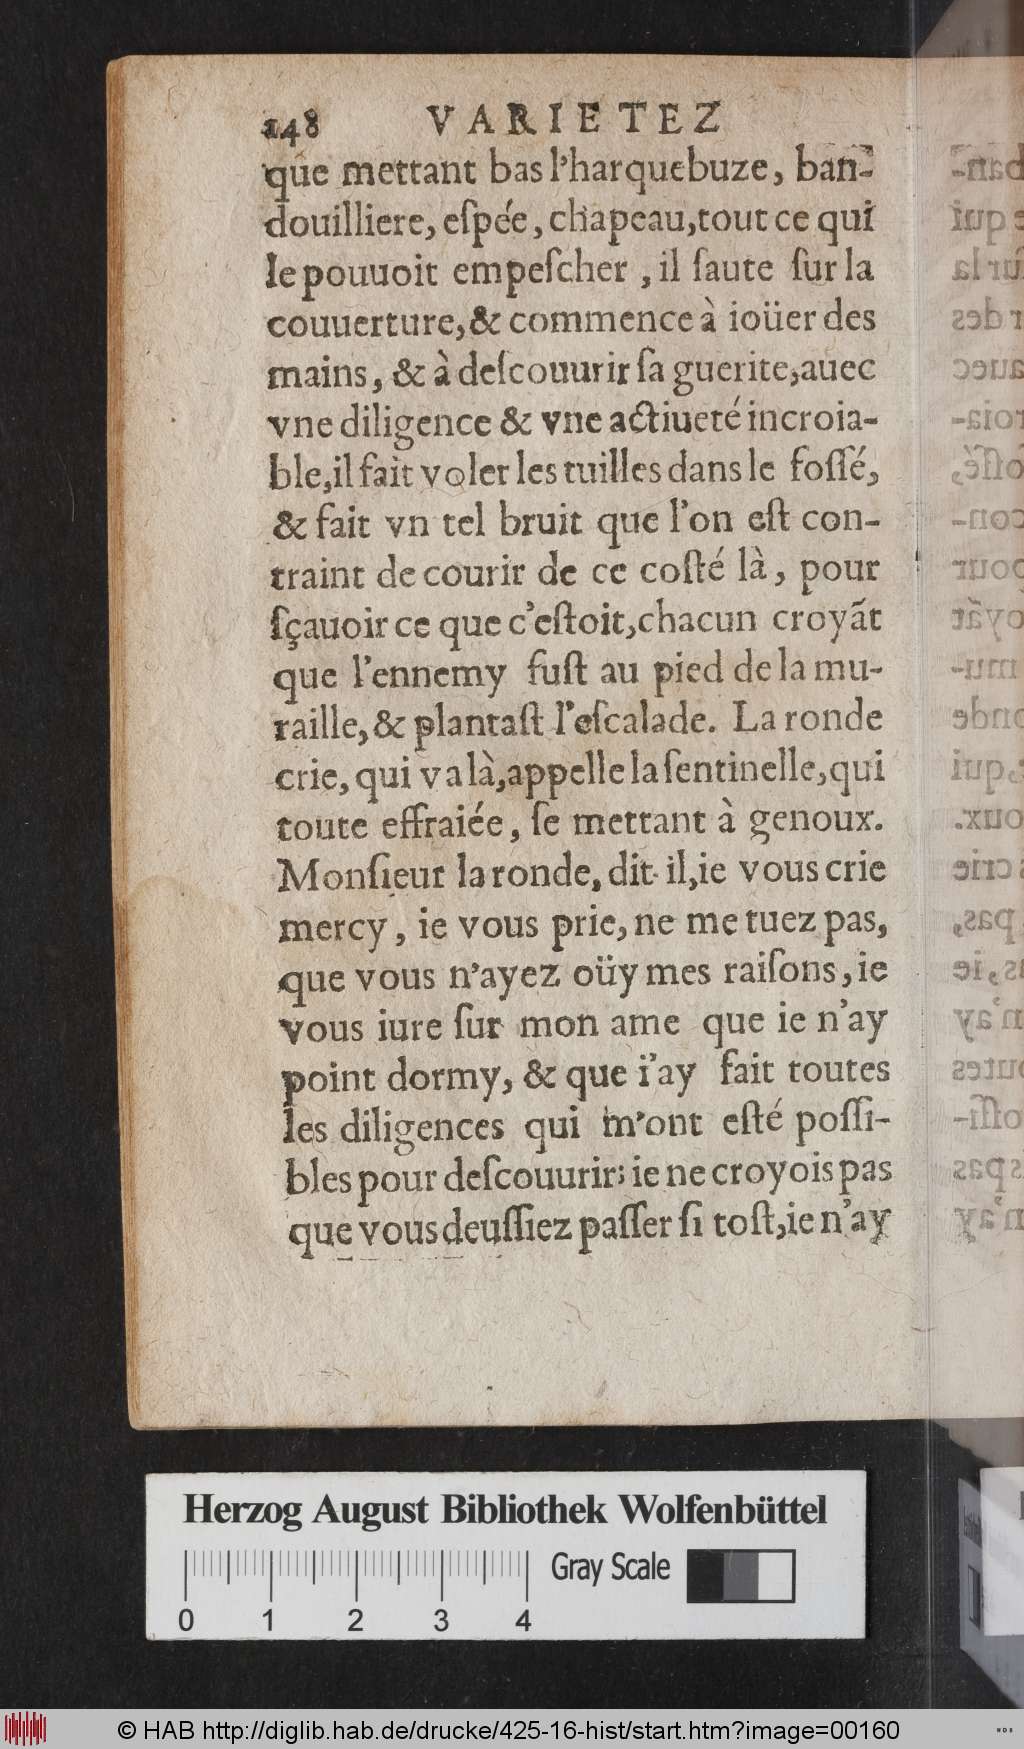 248 VARIETEZ
que mettant bas l'harquebuze, ban-
douilliere, eſpée, chapeau,tout ce qui
le pouuoit empeſcher , il ſaute ſur la
couuerture,& commence à ioüer des
mains, & à deſcouurir ſa guerite,auec
vne diligence & vne actiueté incroia-
ble,il fait voler les tuilles dans le foſſé,
& fait vn tel bruit que l'on eſt con-
traint de courir de ce coſté là, pour
ſçauoir ce que c'eſtoit,chacun croyãt
que l'ennemy fuſt au pied de la mu-
raille,& plantaſt l'eſcalade. La ronde
crie, qui va là,appelle la ſentinelle,qui
toute effraiée, ſe mettant à genoux.
Monſieur la ronde, dit-il,ie vous crie
mercy, ie vous prie, ne me tuez pas,
que vous n'ayez oüy mes raiſons, ie
vous iure ſur mon ame que ie n'ay
point dormy, & que i'ay fait toutes
les diligences qui m'ont eſté poſſi-
bles pour deſcouurir; ie ne croyois pas
que vous deuſſiez paſſer ſi toſt,ie n'ay
Herzog August Bibliothek Wolfenbüttel
Gray Scale
0 1 2 3 4
© HAB http://diglib.hab.de/drucke/425-16-hist/start.htm?image=00160